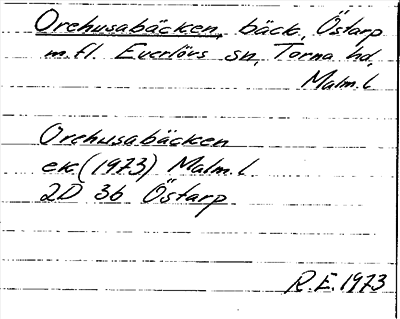 Orehusabäcken, bäck, Östarp
m.fl. Everlövs sn, Torna hd,
Malm.l.
Orehusabäcken
ek.(1973) Malm.l.
2D 3b Östarp
R.E. 1973